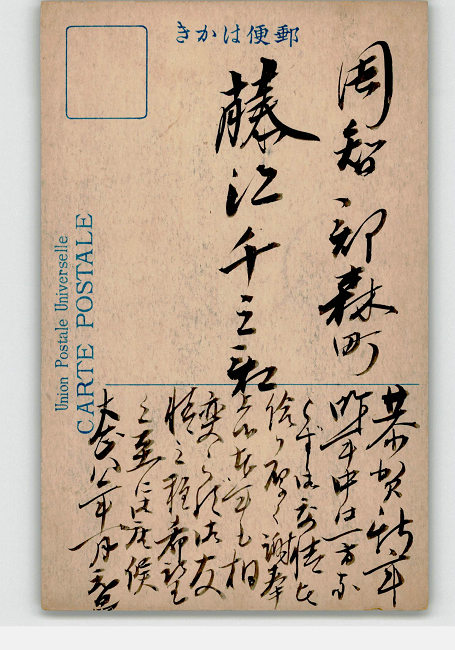 きかは便郵
周智郡森町
藤江千三郎
恭賀新年
昨年中は一方な
らず御交情を
給り厚く謝奉
相
変らず御友
情之程希望
之至に御座候
大正八年一月元旦
Union Postale Universelle
CARTE POSTALE